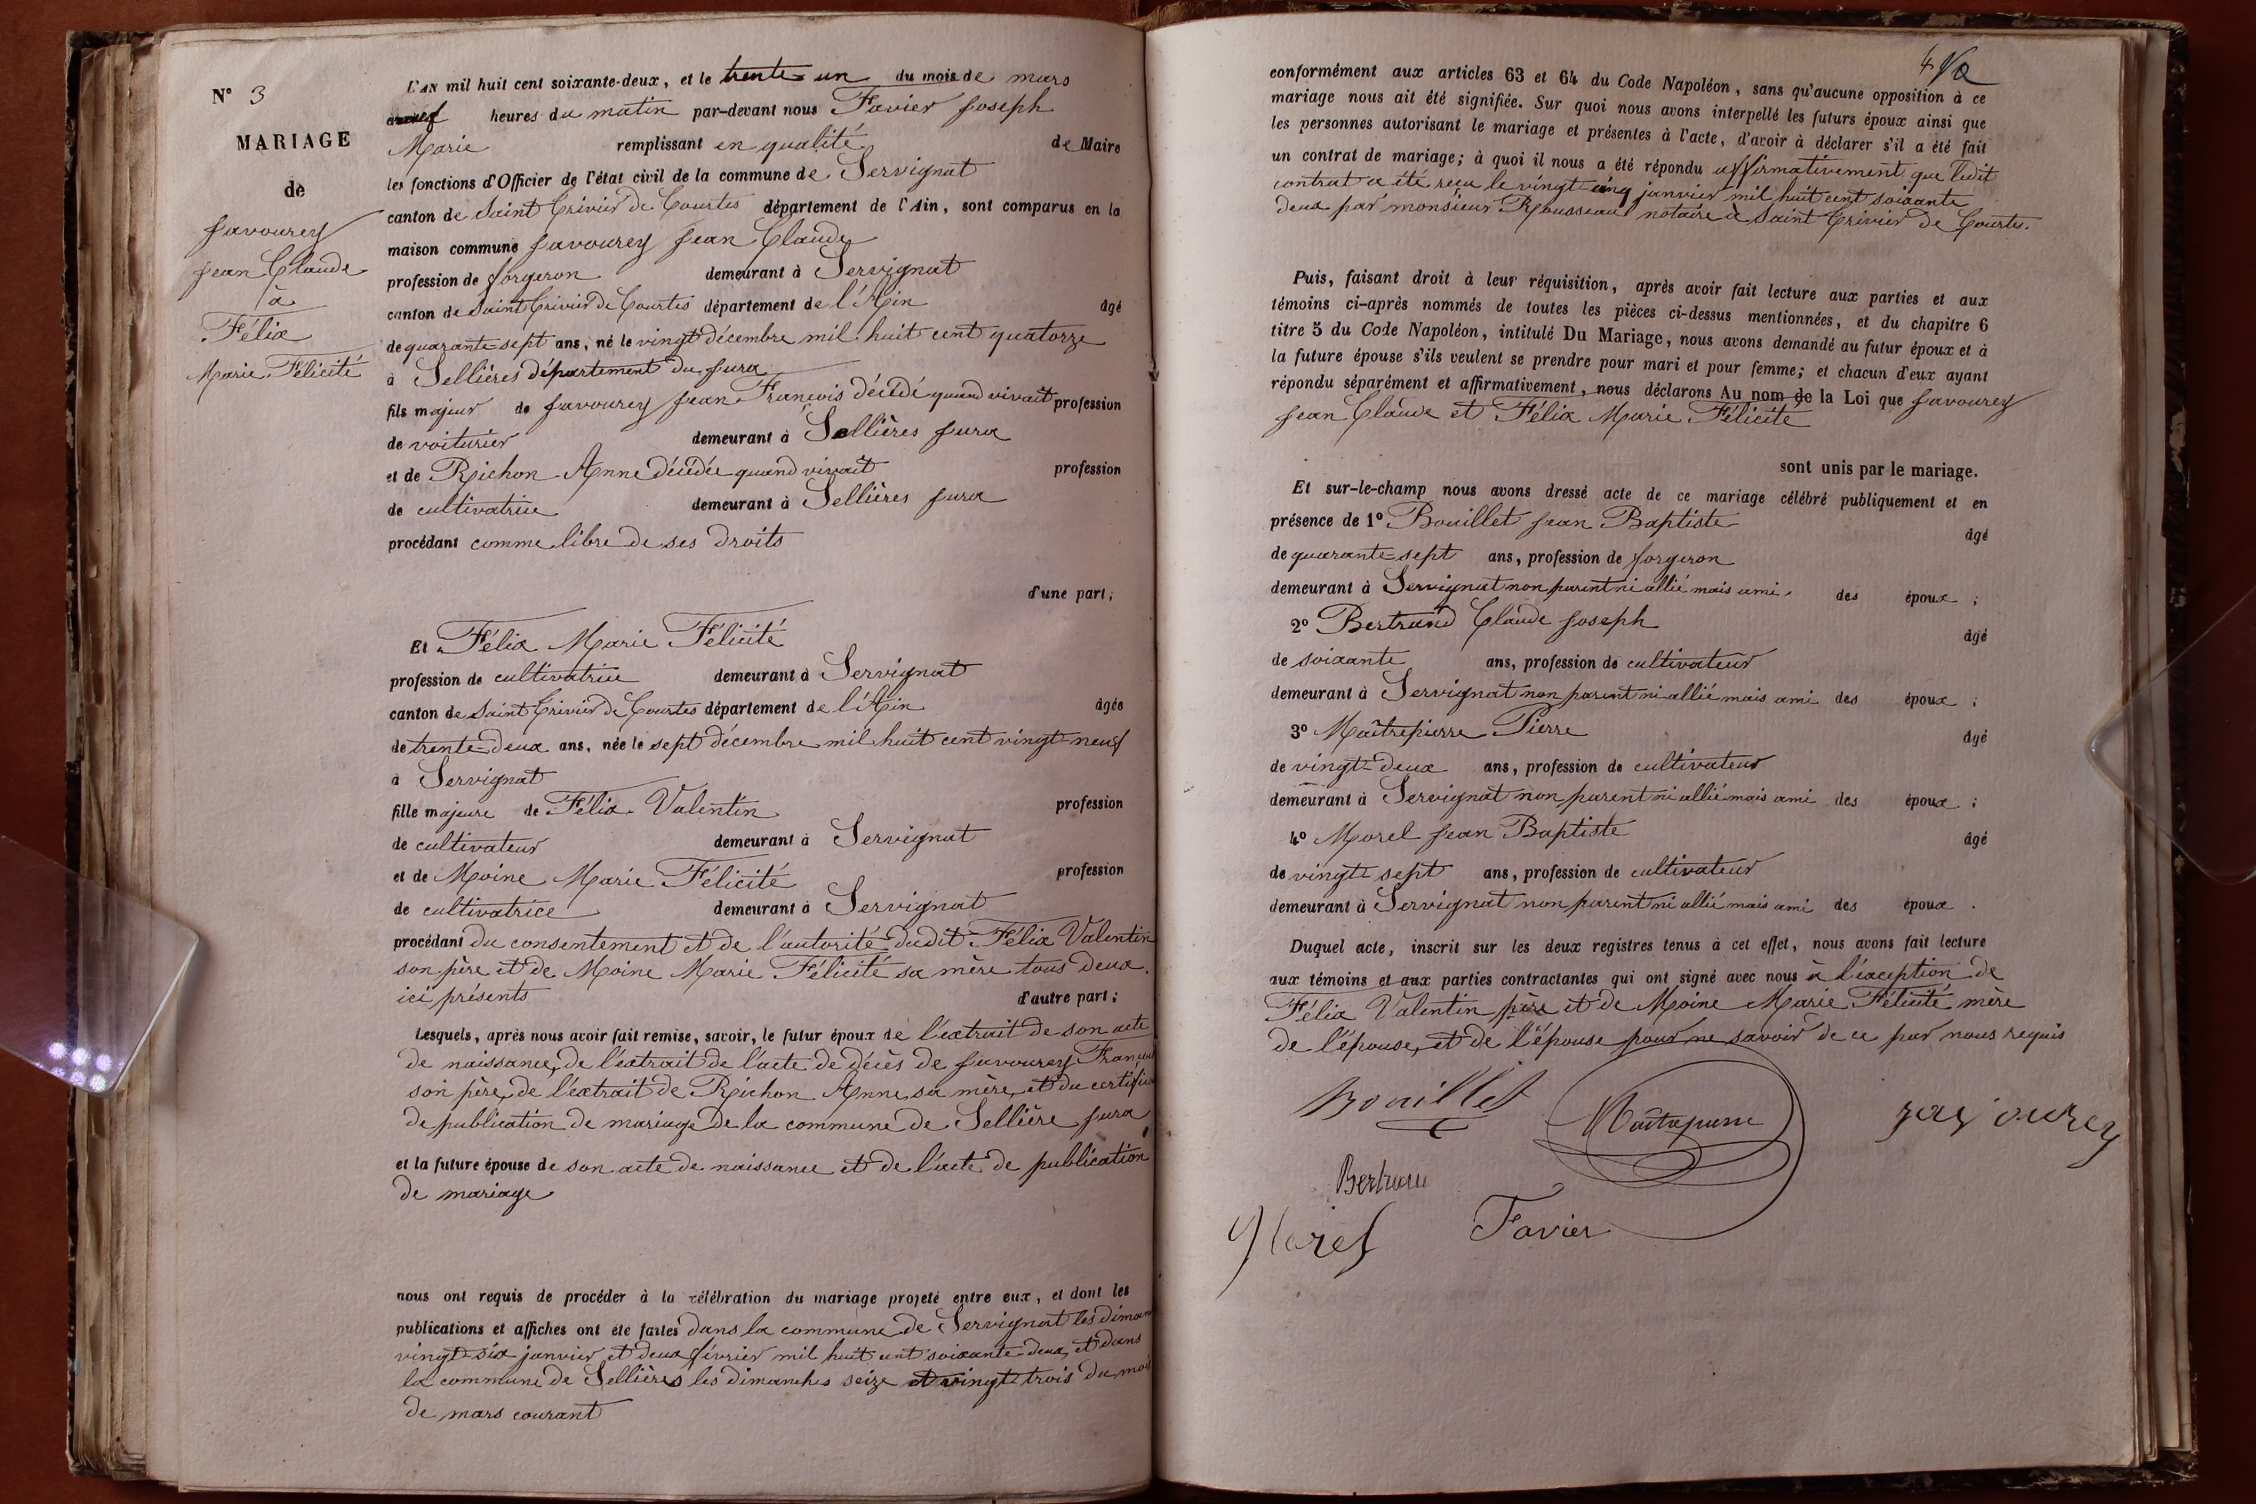 N° 3
MARIAGE
de
Javourey
Jean Claude
à
Félix
Marie Félicité
L'AN mil huit cent soixante-deux, et le trente un du mois de mars
heures du matin par-devant nous Favier Joseph
Marie remplissant en qualité de Maire
les fonctions d'Officier de l'état civil de la commune de Servignat
canton de Saint Trivier de Courtes département de l'Ain, sont comparus en la
maison commune Javourey Jean Claude
profession de forgeron demeurant à Servignat
canton de Saint Trivier de Courtes département de l'Ain âgé
de quarante sept ans, né le vingt décembre mil huit cent quatorze
à Sellières département du Jura
fils majeur de Javourey Jean François décédé quand vivait profession
de voiturier demeurant à Sellières Jura
et de Richon Anne décédée quand vivait profession
de cultivatrice demeurant à Sellières Jura
procédant comme libre de ses droits
d'une part;
Et Félix Marie Félicité
profession de cultivatrice demeurant à Servignat
canton de Saint Trivier de Courtes département de l'Ain âgée
de trente-deux ans, née le sept décembre mil huit cent vingt-neuf
à Servignat
fille majeure de Félix Valentin profession
de cultivateur demeurant à Servignat
et de Moine Marie Félicité profession
de cultivatrice demeurant à Servignat
procédant du consentement et de l'autorité dudit Félix Valentin
son père et de Moine Marie Félicité sa mère tous deux
ici présents d'autre part;
Lesquels, après nous avoir fait remise, savoir, le futur époux de l'extrait de son acte
de naissance, de l'extrait de l'acte de décès de Javourey François
son père, de l'extrait de Richon Anne sa mère, et du certificat
de publication de mariage de la commune de Sellière Jura
et la future épouse de son acte de naissance et de l'acte de publication
de mariage
nous ont requis de procéder à la célébration du mariage projeté entre eux, et dont les
publications et affiches ont été faites dans la commune de Servignat les
vingt-six janvier et deux février mil huit cent soixante-deux, et dans
la commune de Sellières les dimanches seize et vingt-trois du mois
de mars courant
conformément aux articles 63 et 64 du Code Napoléon, sans qu'aucune opposition à ce
mariage nous ait été signifiée. Sur quoi nous avons interpellé les futurs époux ainsi que
les personnes autorisant le mariage et présentes à l'acte, d'avoir à déclarer s'il a été fait
un contrat de mariage; à quoi il nous a été répondu affirmativement que ledit
contrat a été reçu le vingt-cinq janvier mil huit cent soixante
deux par monsieur Rousseau notaire à Saint Trivier de Courtes.
Puis, faisant droit à leur réquisition, après avoir fait lecture aux parties et aux
témoins ci-après nommés de toutes les pièces ci-dessus mentionnées, et du chapitre 6
titre 5 du Code Napoléon, intitulé Du Mariage, nous avons demandé au futur époux et à
la future épouse s'ils veulent se prendre pour mari et pour femme; et chacun d'eux ayant
répondu séparément et affirmativement, nous déclarons Au nom de la Loi que Javourey
Jean Claude et Félix Marie Félicité
sont unis par le mariage.
Et sur-le-champ nous avons dressé acte de ce mariage célébré publiquement et en
présence de 1° Bouillet Jean Baptiste âgé
de quarante-sept ans, profession de forgeron
demeurant à Servignat non parent ni allié mais ami des époux;
2° Bertrand Claude Joseph âgé
de soixante ans, profession de cultivateur
demeurant à Servignat non parent ni allié mais ami des époux;
3° Maîtrepierre Pierre âgé
de vingt-deux ans, profession de cultivateur
demeurant à Servignat non parent ni allié mais ami des époux;
4° Morel Jean Baptiste âgé
de vingt sept ans, profession de cultivateur
demeurant à Servignat non parent ni allié mais ami des époux.
Duquel acte, inscrit sur les deux registres tenus à cet effet, nous avons fait lecture
aux témoins et aux parties contractantes qui ont signé avec nous à l'exception de
Félix Valentin père et de Moine Marie Félicité mère
de l'épouse, et de l'épouse pour ne savoir de ce par nous requis
Bouillet Maîtrepierre Javourey
Bertrand
Morel Favier